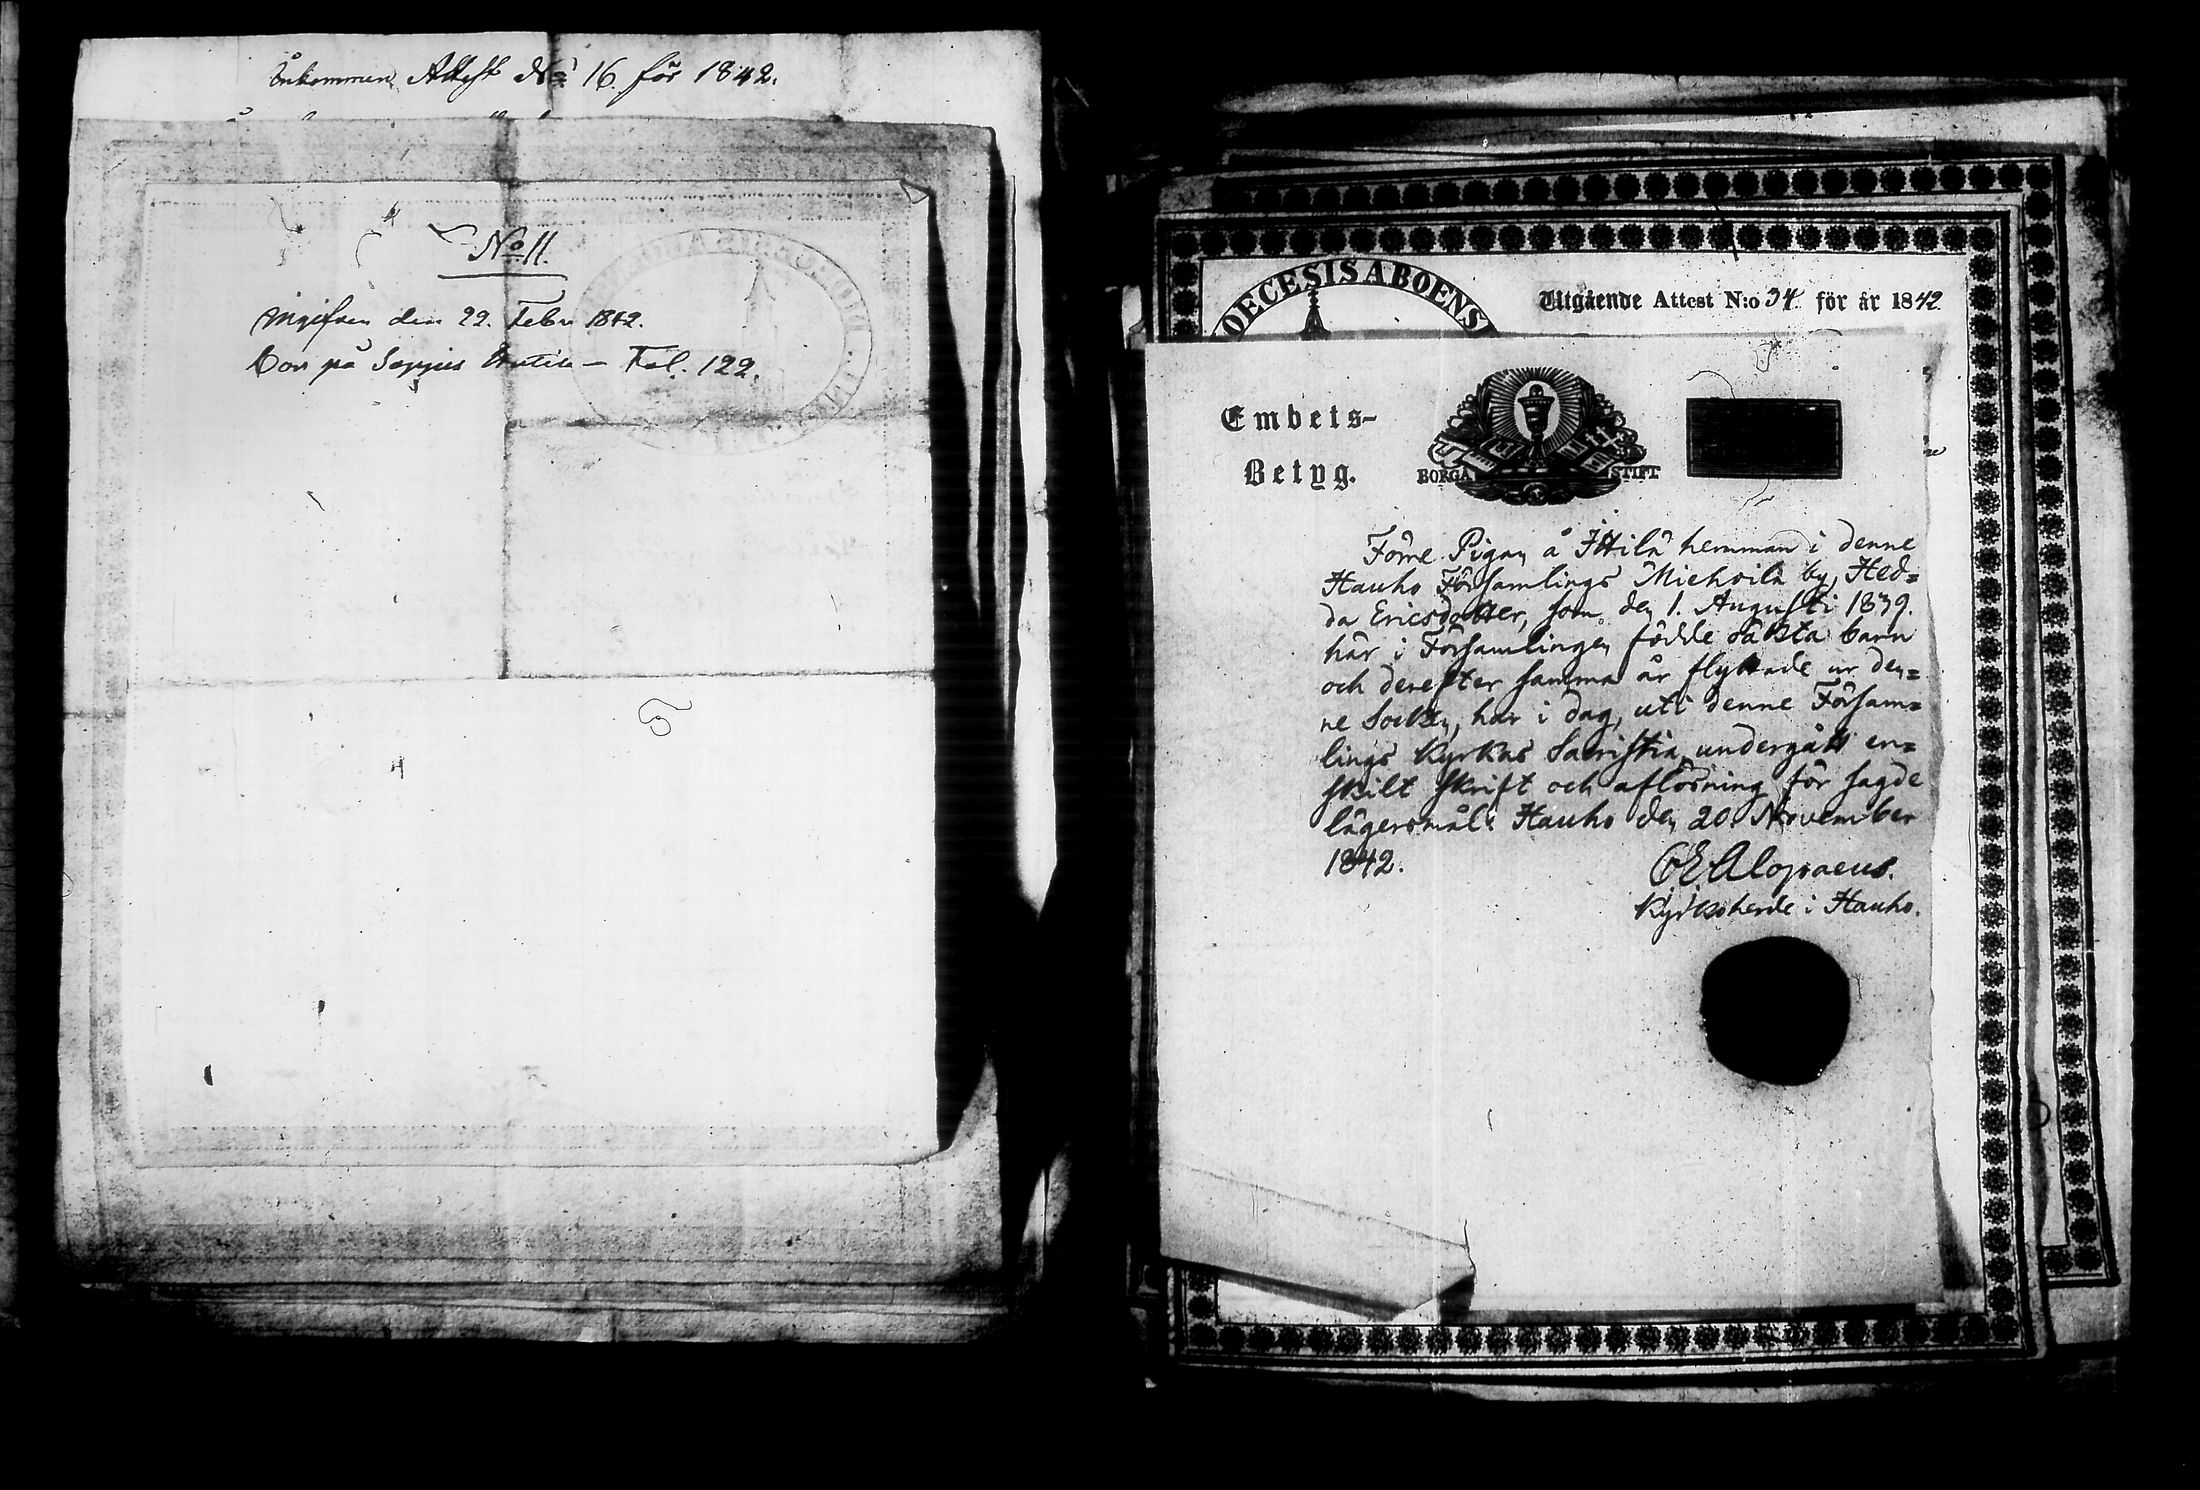 Ånkommen Attest No 16. för 1842.
No 11.
Ingifven den 22. Febr 1842.
Bor på Seppius — Fol. 122.
DIOECESIS ABOENS
Utgående Attest N:o 34 för år 1842
Embets-
Betyg.
BORGÅ STIFT
Förre Pigan å Ittilä hemman i denne
Hauho Församlings Miehoilä by, Hed=
da Ericsdotter, som den 1. Augusti 1839.
här i Församlingen födde oäkta barn
och derefter samma år flyttade ur den=
ne Socken, har i dag, uti denne Försam=
lings Kyrkas Sacristia, undergått en=
skilt skrift och aflösning för sagde
lägersmål. Hauho den 20 November
1842.
CEAlopaeus.
Kyrkoherde i Hauho.